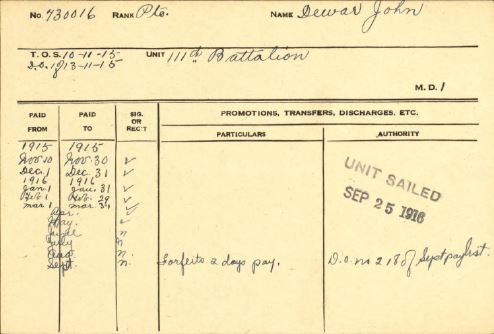 No. 730016 RANK Pte. NAME Dewar John
T.O.S. 10-11-15 UNIT 111th Battalion
D.O. 1 of 13-11-15
M.D. 1
PAID FROM PAID TO SIG. OR REC'T PROMOTIONS, TRANSFERS, DISCHARGES, ETC.
PARTICULARS AUTHORITY
1915 1915
Nov. 10 Nov. 30 ✓
Dec. 1 Dec. 31 ✓
1916 1916
Jan. 1 Jan. 31 ✓
Feb. 1 Feb. 29 ✓
Mar. 1 Mar. 31 ✓
Apr. ✓
May. ✓
June n
July n
Aug. n.
Sept. n. Forfeits 2 days pay. D.O. no 218 of Sept paylist.
UNIT SAILED
SEP 25 1916